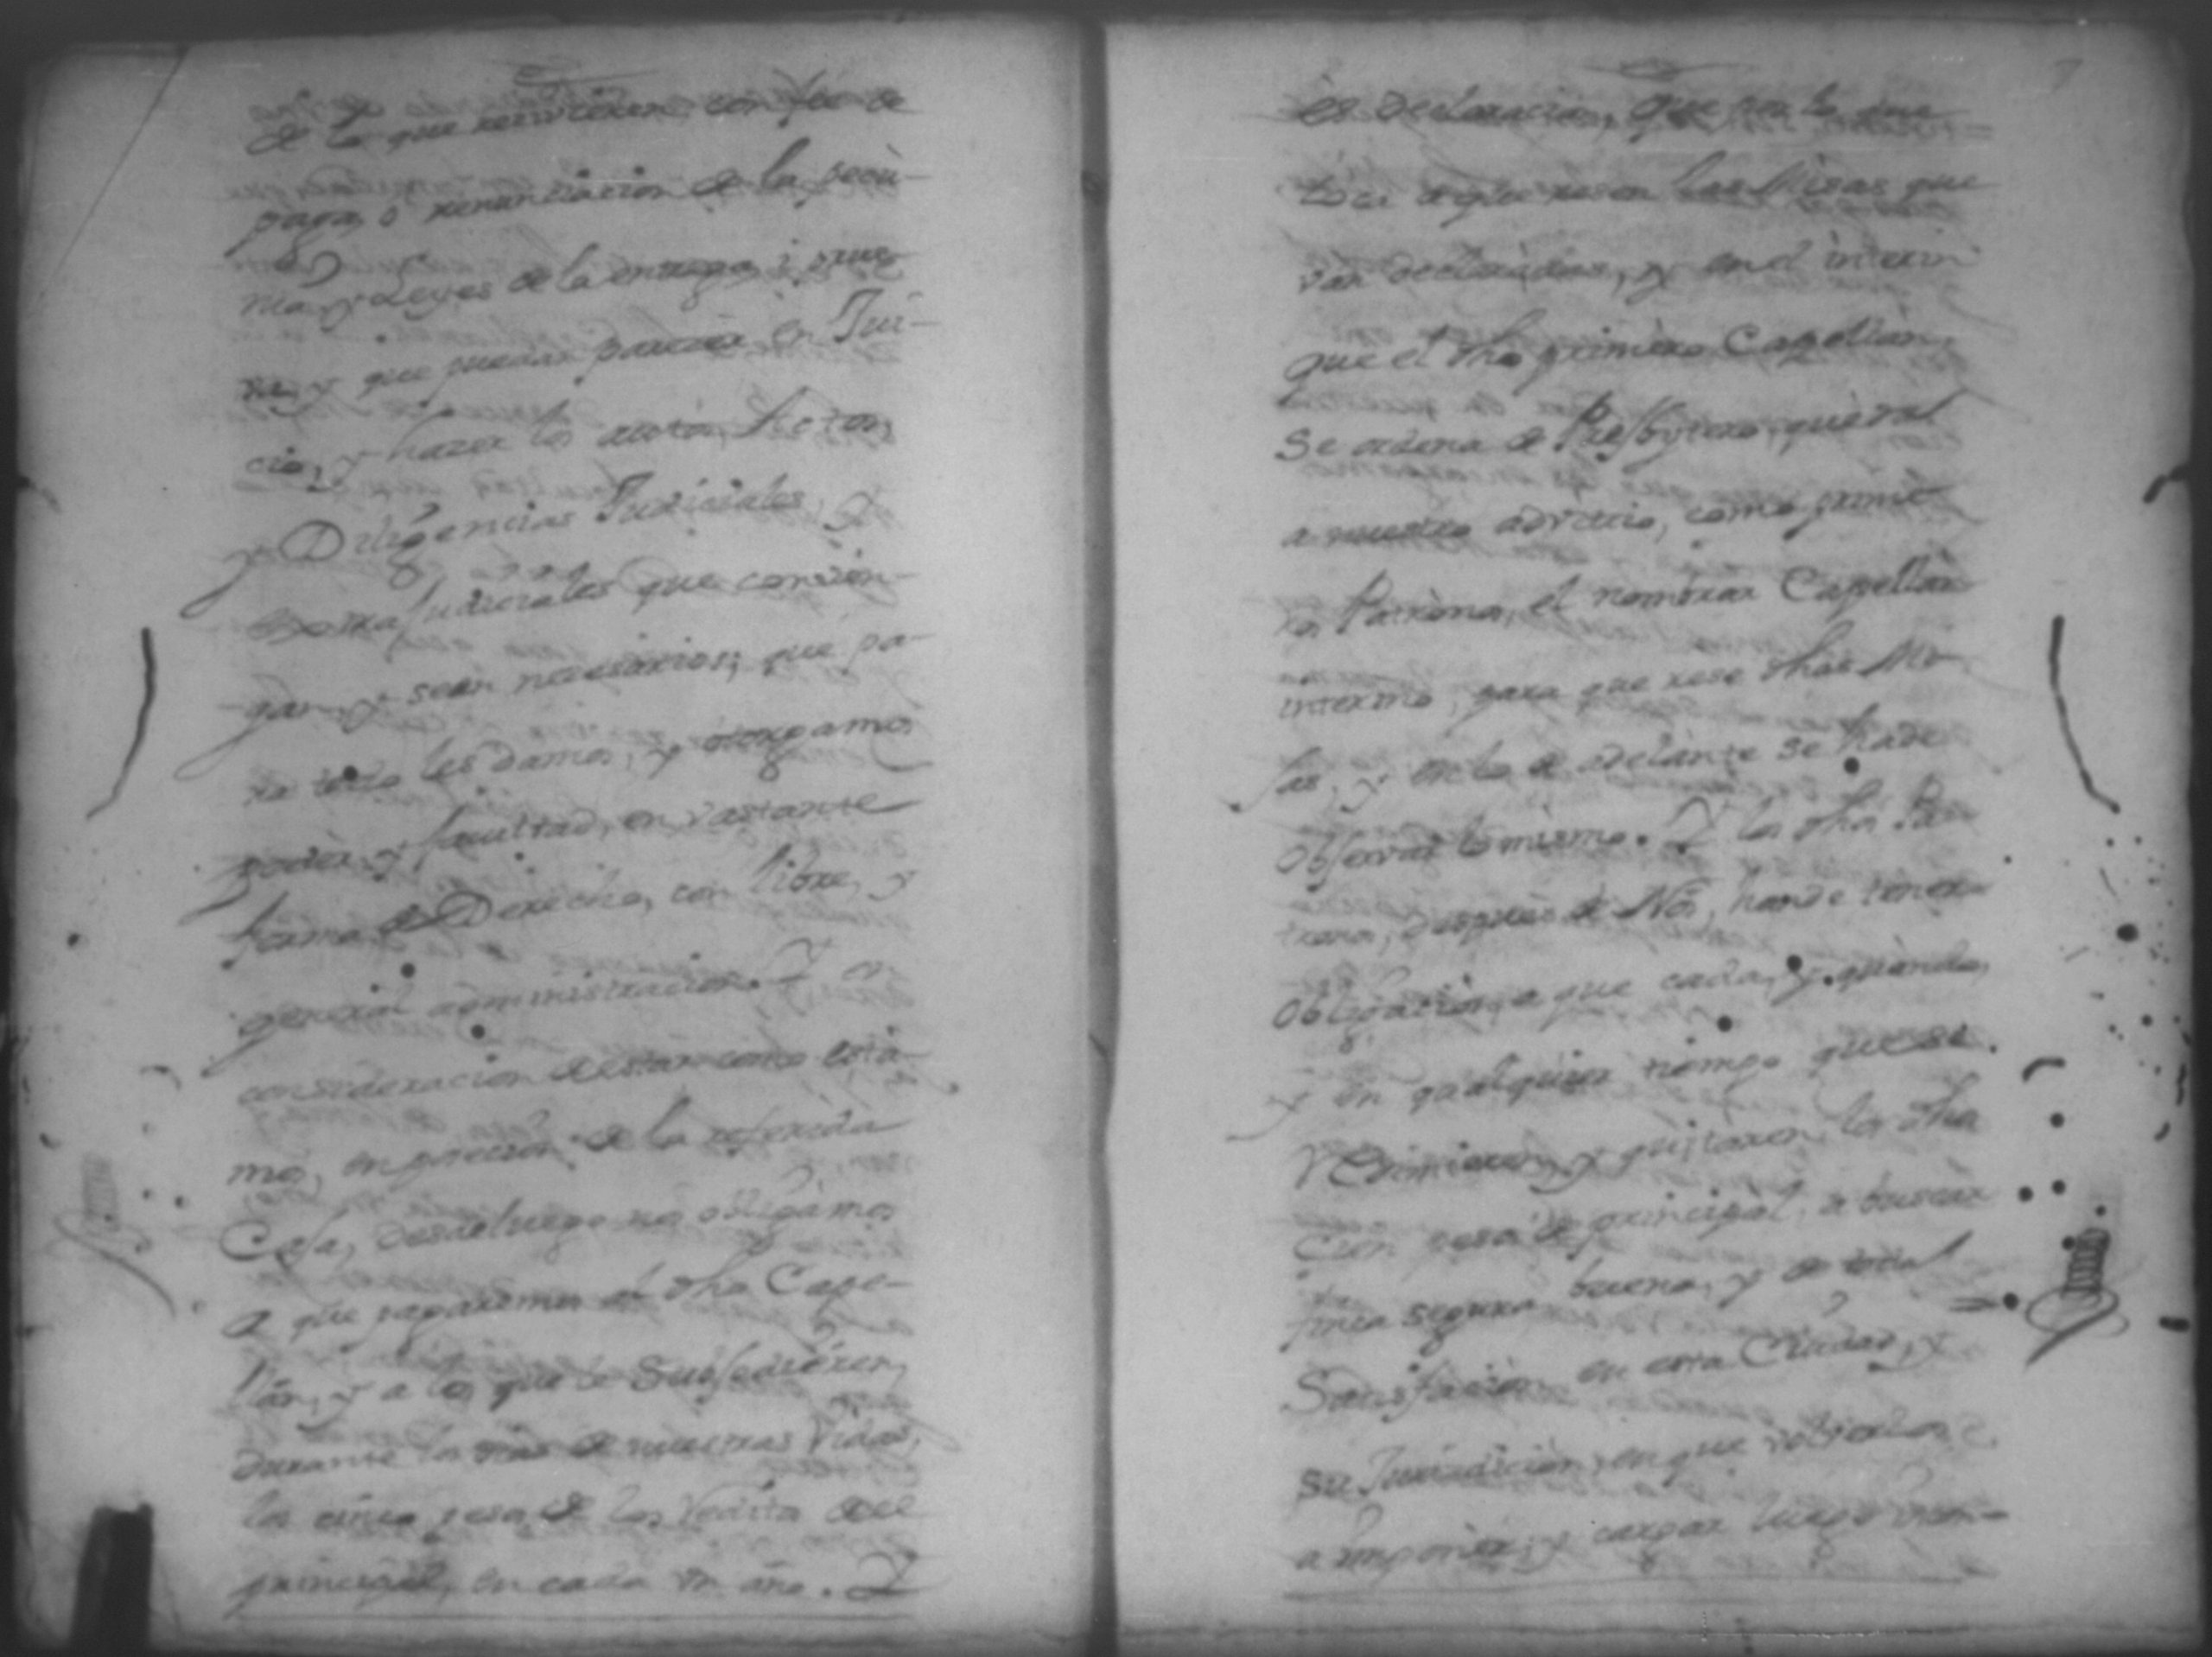 de lo que recivieren con fee de
paga, ò renunciacion de la pecù-
nia, y Leyes de la entrega, i prue
va, y que puedan parecer en Jui-
cio, y hazer los autos, Actos,
y Diligencias Judiciales, y
extrajudiciales que conven-
gan, y sean necesarios; que pa-
ra todo les damos, y otorgamos
poder, y facultad, en vastante
forma de Derecho, con libre, y
general administracion. Y en
consideracion de estar como está-
mos, en posecion de la referida
Casa, desde luego nos obligàmos
a que pagaremos al dho Cape-
llàn, y a los que le Subsedieren,
durante los dias de nuestras vidas,
los cinco pesos de los reditos de el
principal, en cada un año. Y
es declaracion, que por lo que
toca a que resen las Missas que
van declaradas, y en el interin
que el dho primero Capellàn,
se ordena de Presbytero, que dal
a nuestro advitrio, como prime
ros Patrònos, el nombrar Capellàn
interino, para que rese dhas Mi
sas, y en lo de adelante se hade
observar lo mismo. Y los dhos Pa
tronos, despues de Nos, hande tener
obligacion, a que cada, y quando,
y en qualquier tiempo que se
redimieren, y quitaren, los dhos
Cien pesos de principàl, a buscàr
finca segura buena, y de toda
Satisfacion en esta Ciudad, y
su Jurisdicion, en que volverlos
a imponer, y cargar luego